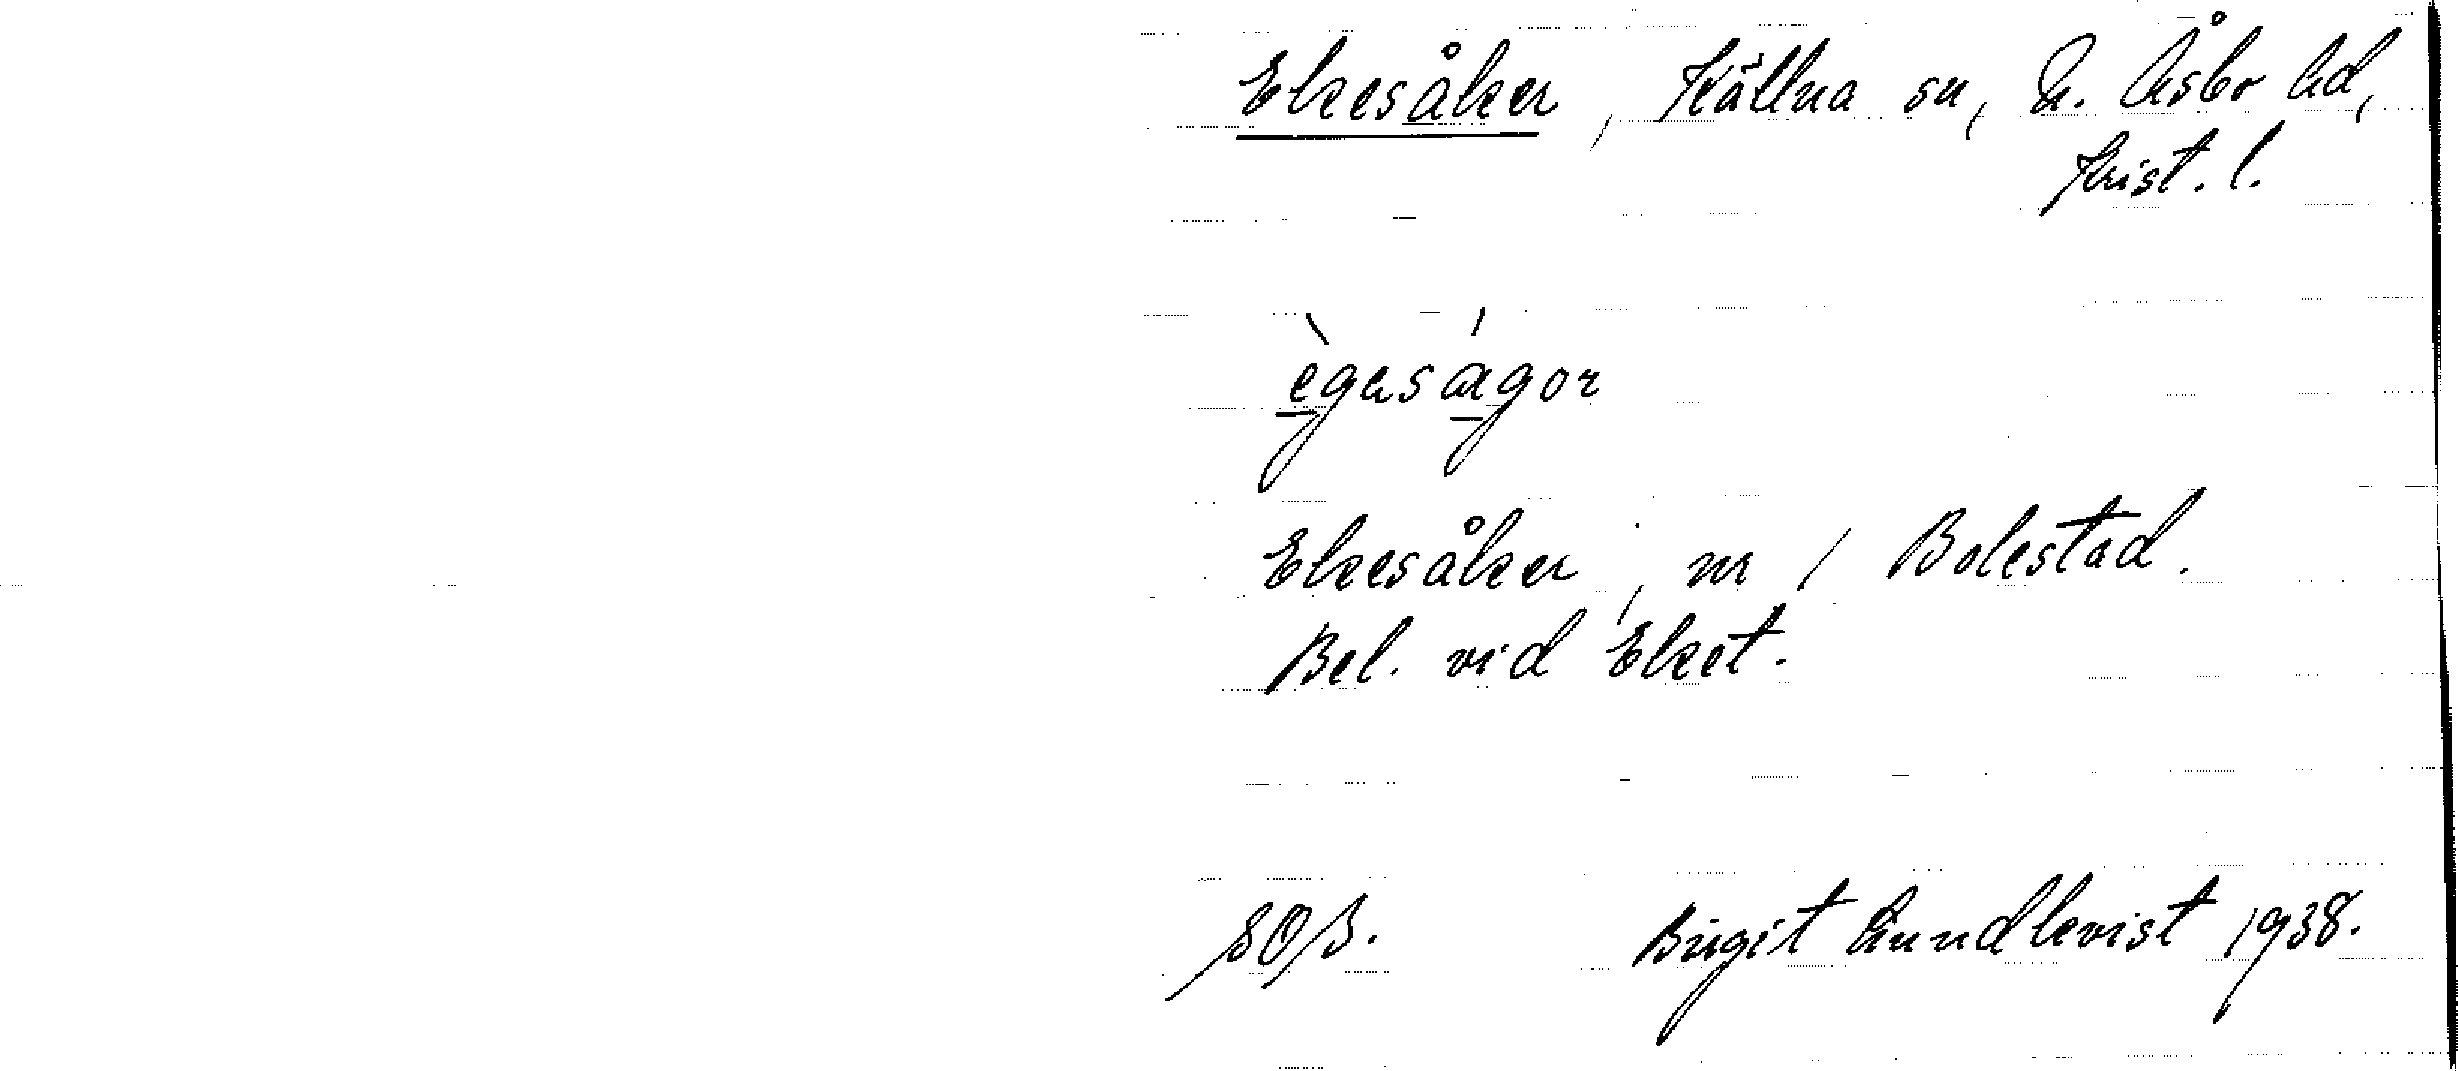 Ekesåker, Källna sn, N. Åsbo hd,
Krist. l.
ègəságor
Ekesåker, nr 1 Bolestad.
Bel. vid Eket.
SOB. Birgit Lundkvist 1938.